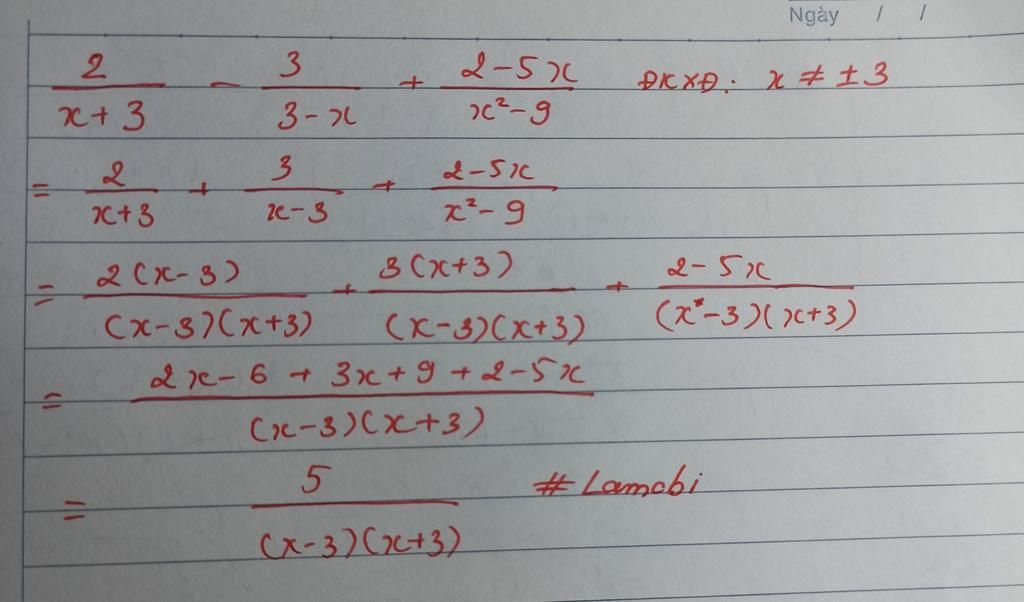 Ngày / /
2/(x+3) - 3/(3-x) + (2-5x)/(x²-9) ĐKXĐ: x ≠ ±3
= 2/(x+3) + 3/(x-3) + (2-5x)/(x²-9)
= 2(x-3)/((x-3)(x+3)) + 3(x+3)/((x-3)(x+3)) + (2-5x)/((x-3)(x+3))
= (2x-6+3x+9+2-5x)/((x-3)(x+3))
= 5/((x-3)(x+3)) #Lamabi